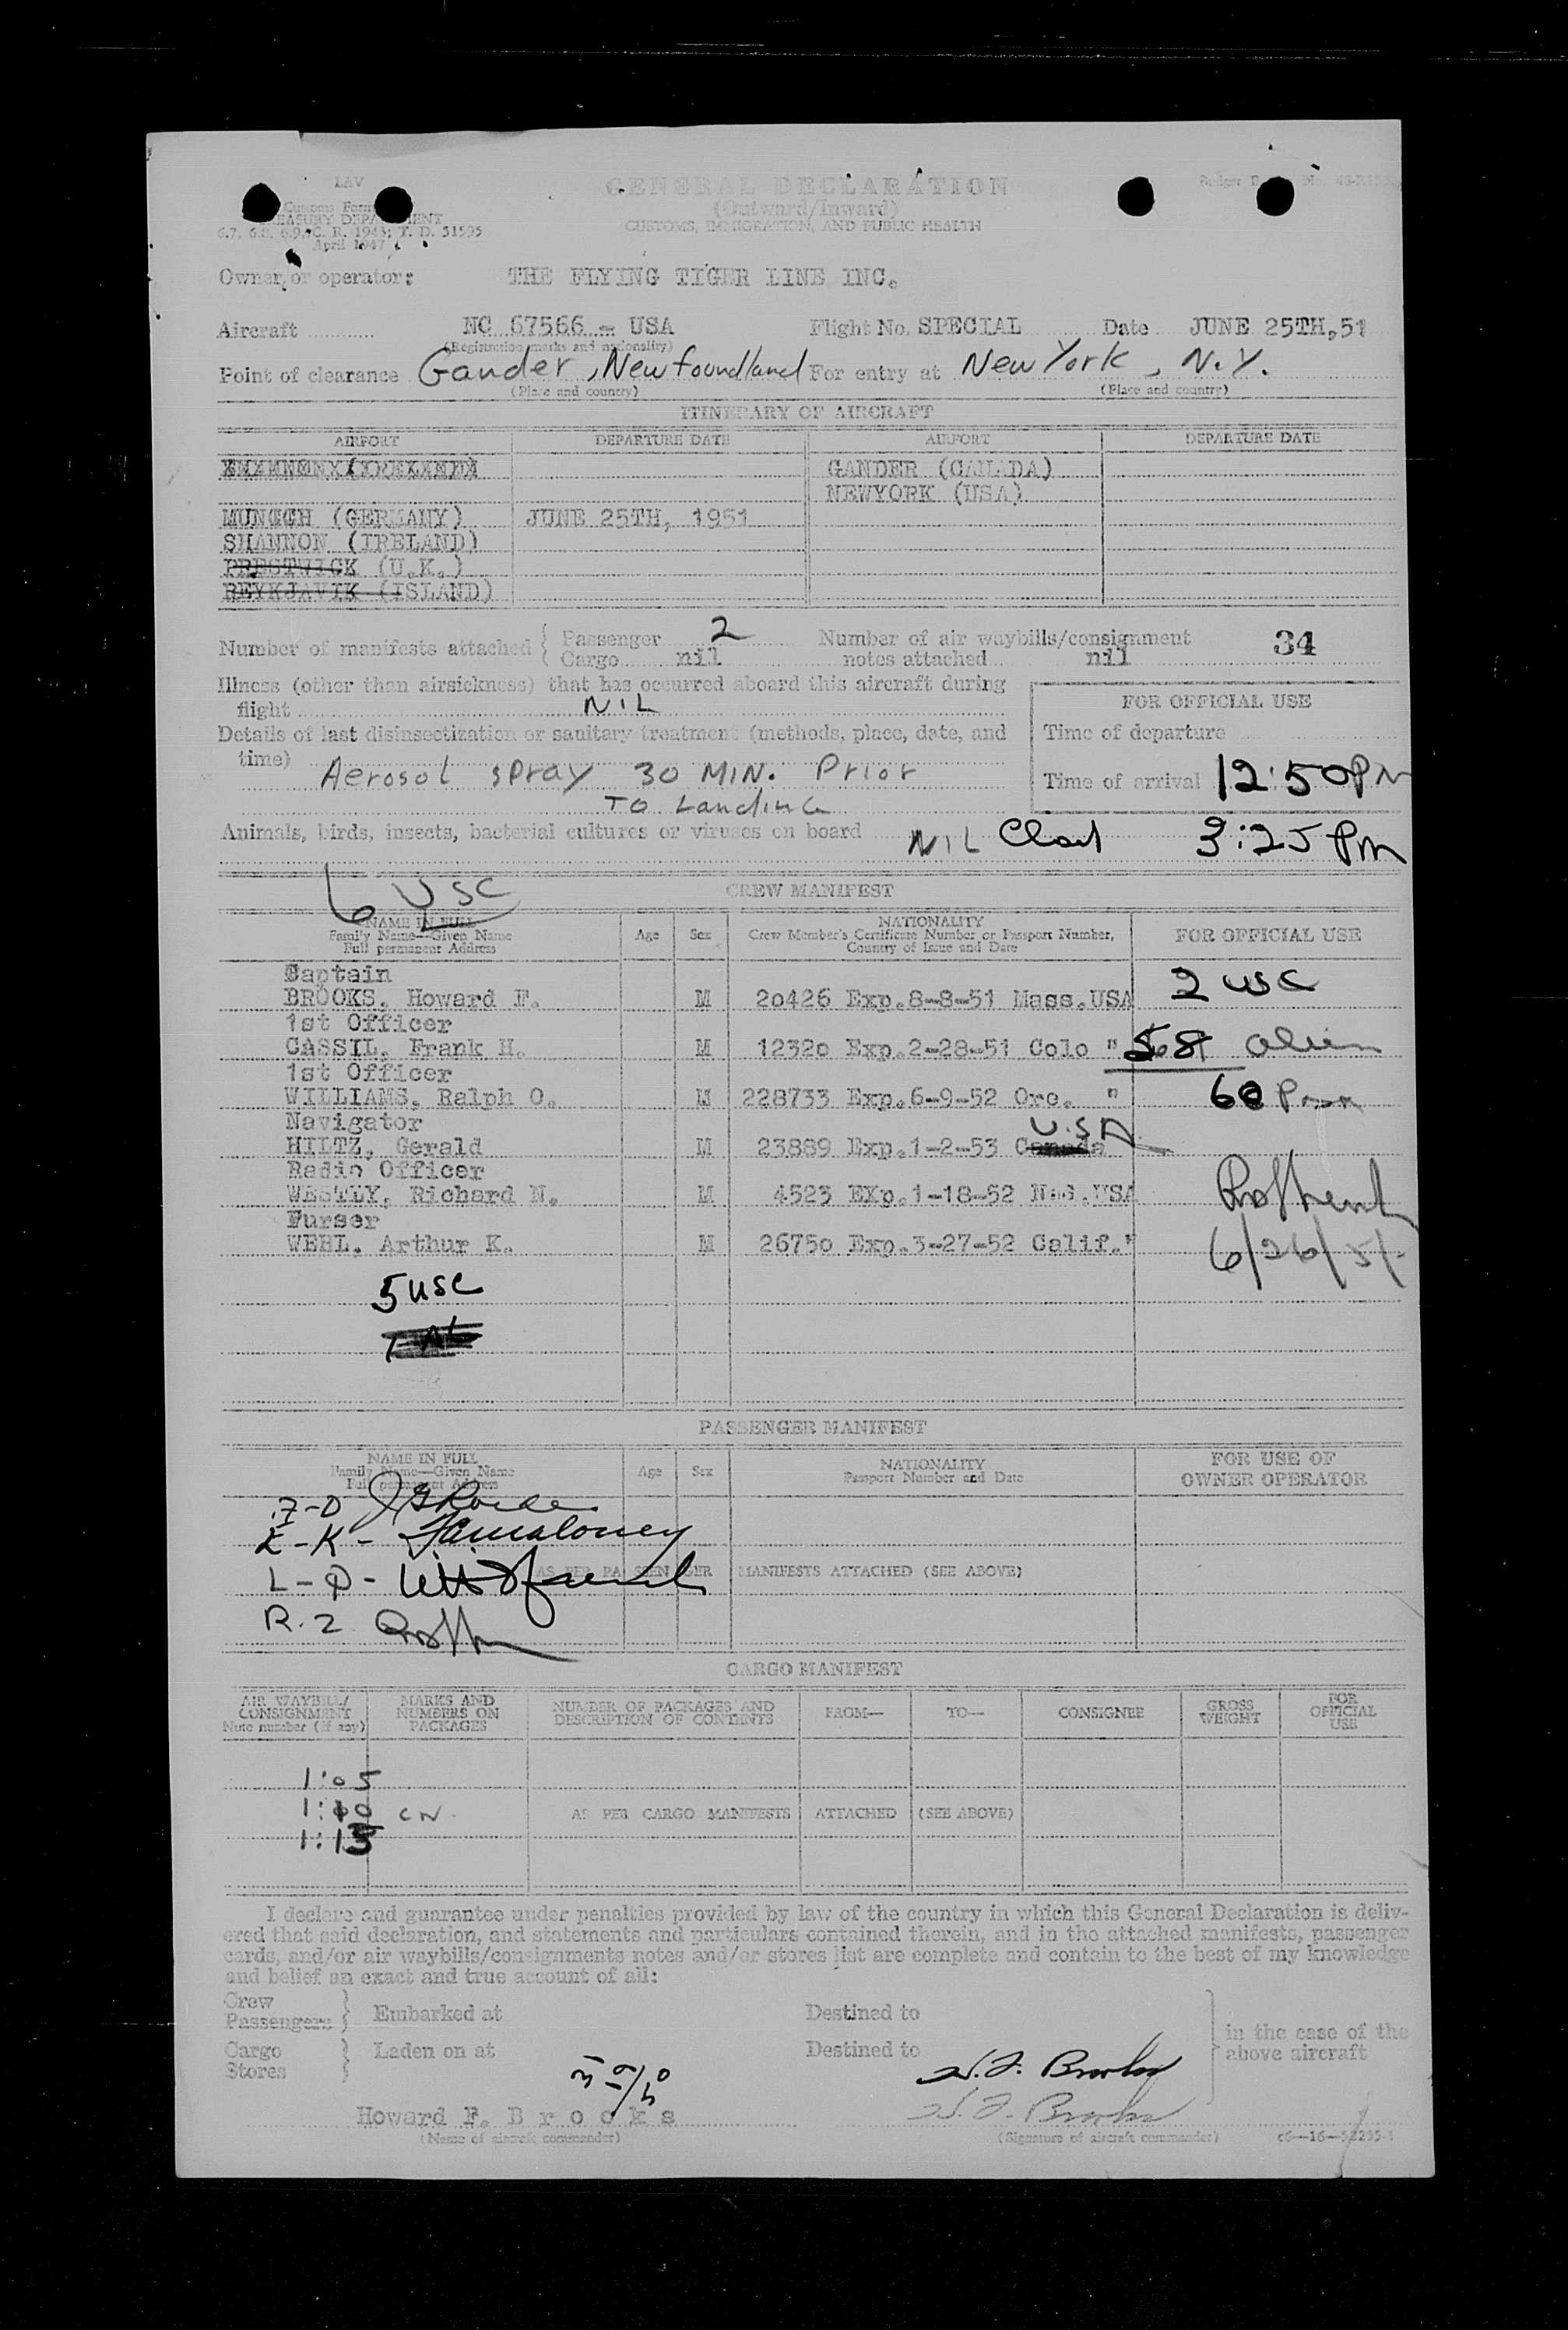 LAV
Customs Form
TREASURY DEPARTMENT
6.7, 6.8, 6.9, C. R. 1943; T. D. 51595
April 1947
GENERAL DECLARATION
(Outward/Inward)
CUSTOMS, IMMIGRATION, AND PUBLIC HEALTH
Owner or operator: THE FLYING TIGER LINE INC.
Aircraft NC 67566 - USA Flight No. SPECIAL Date JUNE 25TH,51
(Registration marks and nationality)
Point of clearance Gander, Newfoundland For entry at New York, N.Y.
(Place and country) (Place and country)
ITINERARY OF AIRCRAFT
AIRPORT DEPARTURE DATE AIRPORT DEPARTURE DATE
GANDER (CANADA)
NEWYORK (USA)
MUNCCH (GERMANY) JUNE 25TH, 1951
SHANNON (IRELAND)
PRESTWICK (U.K.)
REYKJAVIK (ISLAND)
Number of manifests attached { Passenger 2 Number of air waybills/consignment 34
Cargo nil notes attached nil
Illness (other than airsickness) that has occurred aboard this aircraft during
flight NIL
FOR OFFICIAL USE
Details of last disinsectization or sanitary treatment (methods, place, date, and
time) Aerosol spray 30 MIN. Prior
To Landing
Time of departure
Time of arrival 12:50PM
Animals, birds, insects, bacterial cultures or viruses on board NIL 3:25 PM
6 USC
CREW MANIFEST
NAME IN FULL
Family Name—Given Name
Full permanent Address
Age Sex
NATIONALITY
Crew Member's Certificate Number or Passport Number,
Country of Issue and Date
FOR OFFICIAL USE
Captain
BROOKS, Howard F. M 20426 Exp.8-8-51 Mass.USA 2 USC
1st Officer
CASSIL, Frank H. M 12320 Exp.2-28-51 Colo " 58 alien
1st Officer
WILLIAMS, Ralph O. M 228733 Exp.6-9-52 Ore. " 60
Navigator
HILTZ, Gerald M 23889 Exp.1-2-53 Canada U.S.A.
Radio Officer
WESTLY, Richard N. M 4523 EXp.1-18-52 USA
Purser
WEBL, Arthur K. M 26750 Exp.3-27-52 Calif."
6/26/51
5 USC
PASSENGER MANIFEST
NAME IN FULL
Family Name—Given Name
Full permanent Address
Age Sex
NATIONALITY
Passport Number and Date
FOR USE OF
OWNER OPERATOR
E-K-
L-Q-
R-Z
AS PER PASSENGER MANIFESTS ATTACHED (SEE ABOVE)
CARGO MANIFEST
AIR WAYBILL/
CONSIGNMENT
Note number (if any)
MARKS AND
NUMBERS ON
PACKAGES
NUMBER OF PACKAGES AND
DESCRIPTION OF CONTENTS
FROM— TO— CONSIGNEE
GROSS
WEIGHT
FOR
OFFICIAL
USE
1:05
1:10 CN
1:15
AS PER CARGO MANIFESTS ATTACHED (SEE ABOVE)
I declare and guarantee under penalties provided by law of the country in which this General Declaration is deliv-
ered that said declaration, and statements and particulars contained therein, and in the attached manifests, passenger
cards, and/or air waybills/consignments notes and/or stores list are complete and contain to the best of my knowledge
and belief an exact and true account of all:
Crew
Passengers } Embarked at Destined to
Cargo
Stores } Laden on at Destined to
in the case of the
above aircraft
H. F. Brooks
Howard F. B r o o k s H. F. Brooks
(Name of aircraft commander) (Signature of aircraft commander)